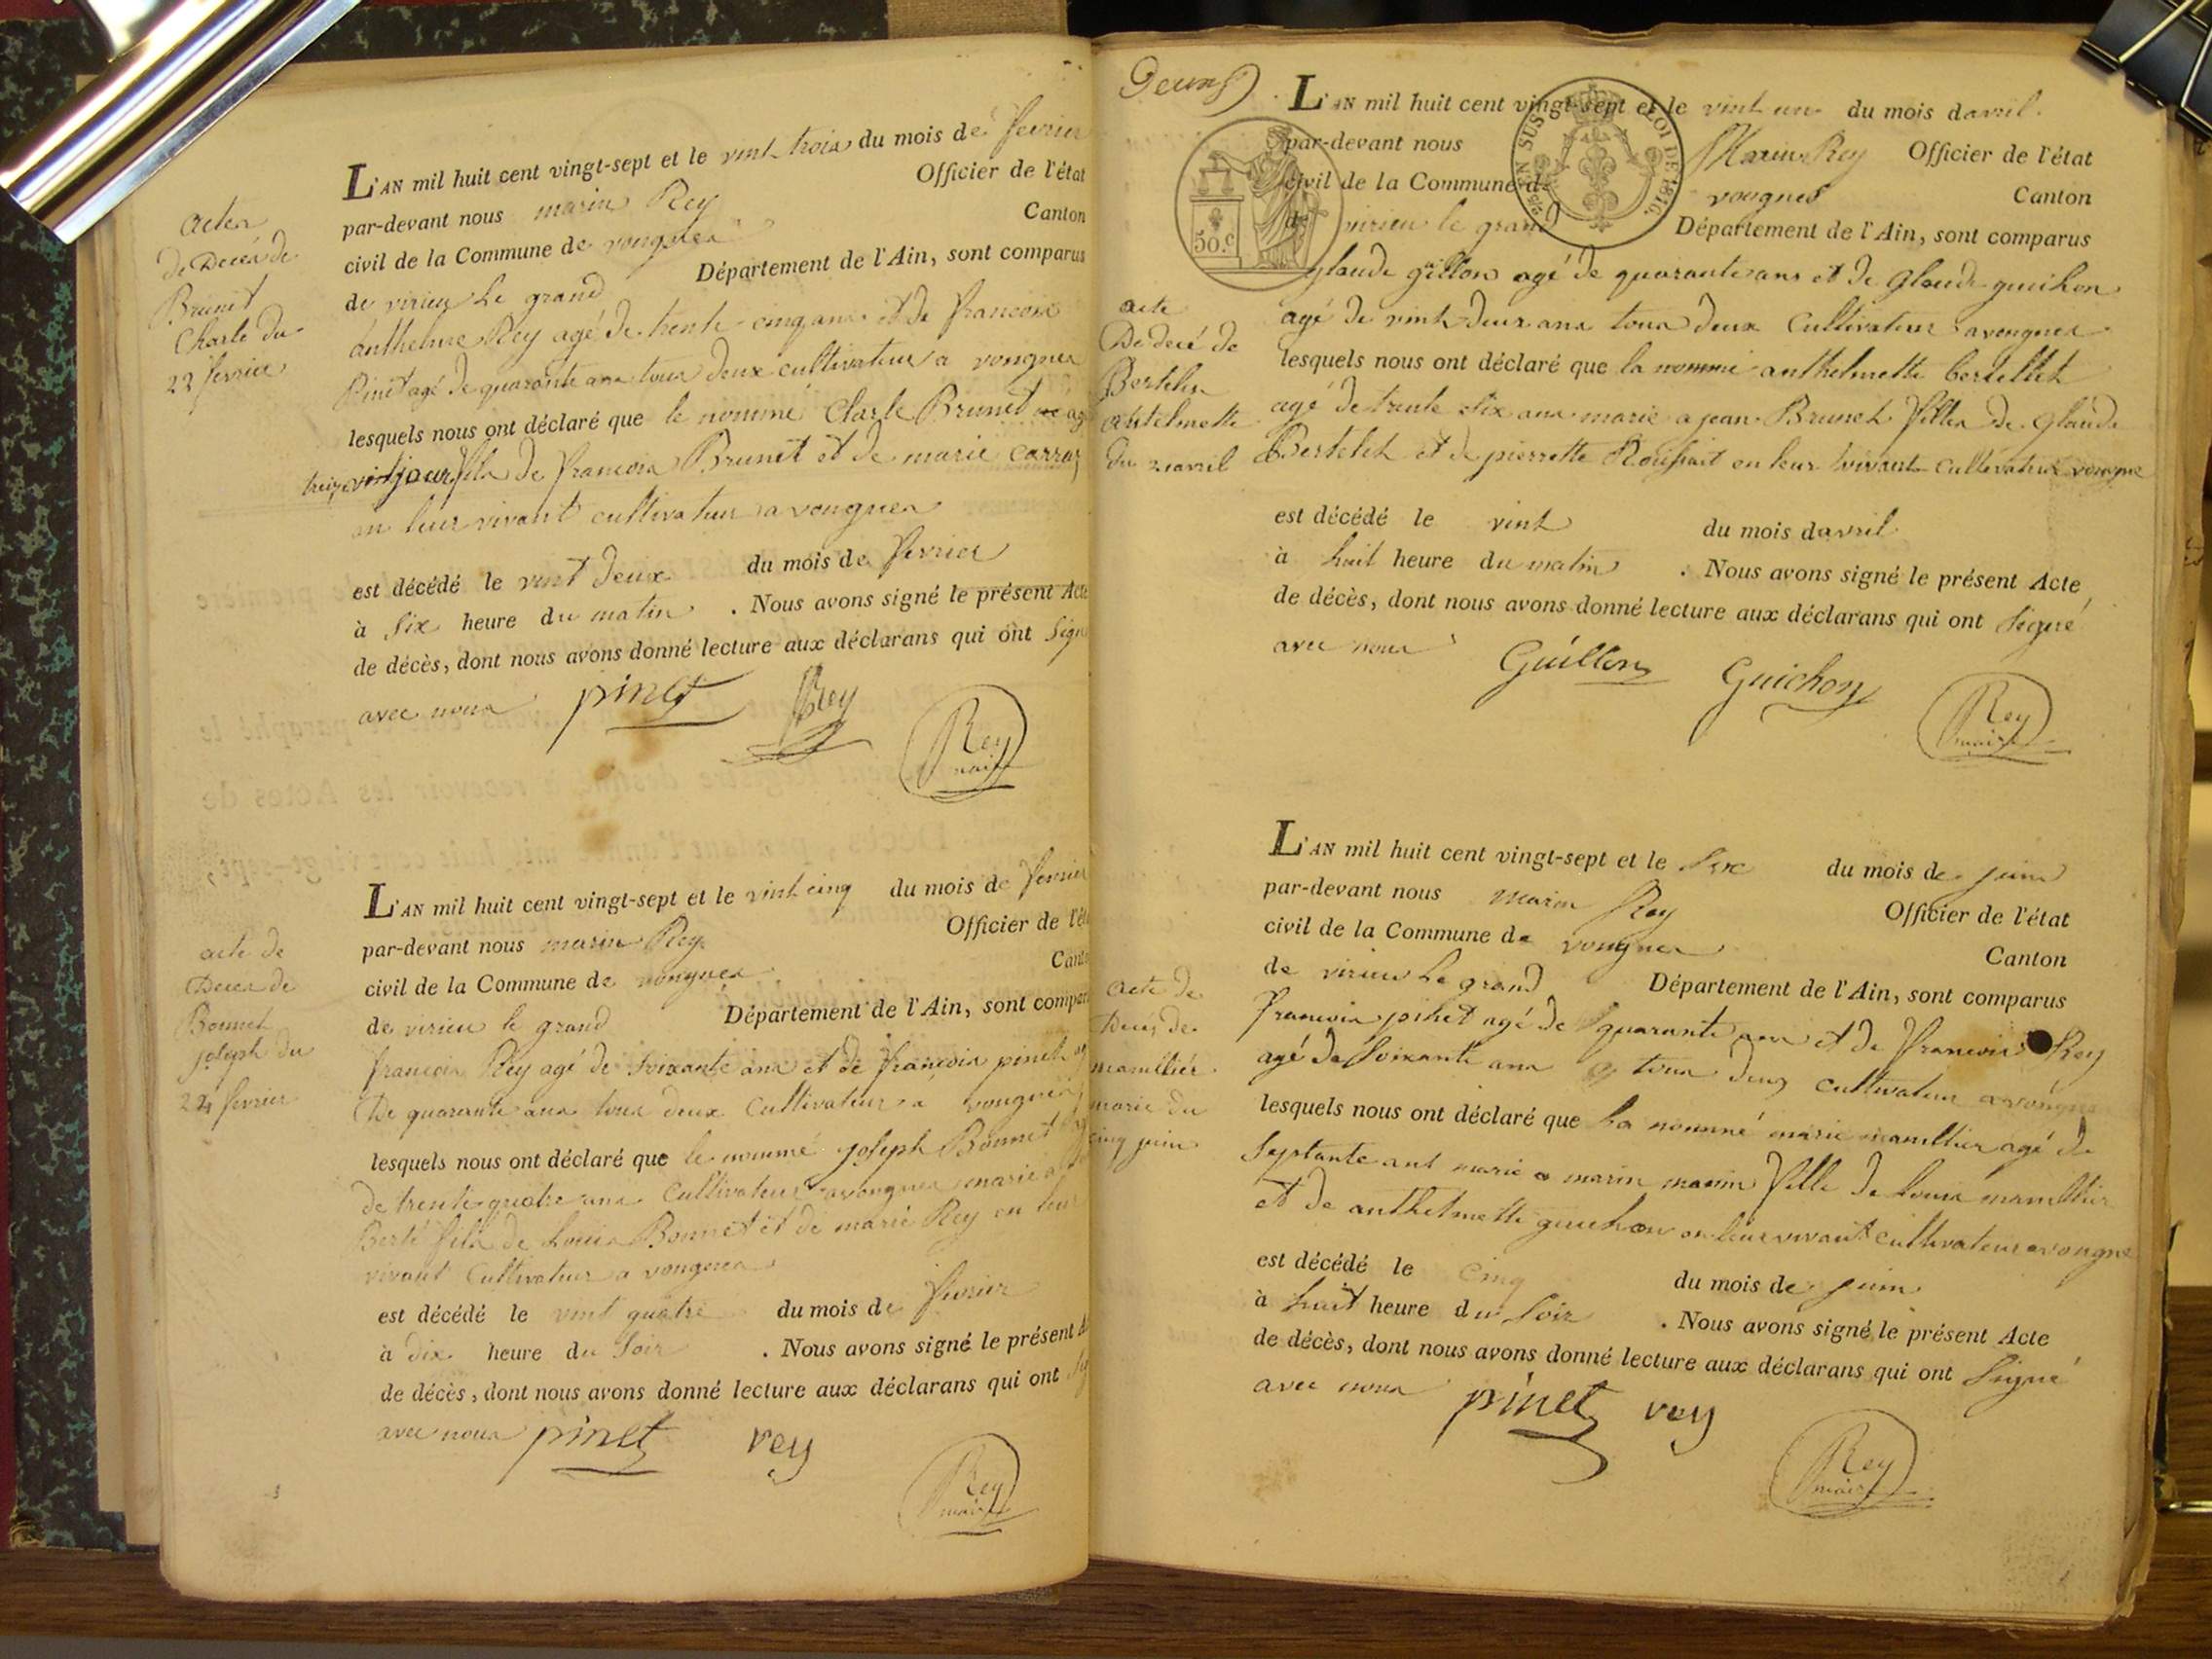 Acter
de Decés de
Brunet
Charle du
22 fevrier
L'AN mil huit cent vingt-sept et le vint trois du mois de fevrier
par-devant nous marin Rey Officier de l'état
civil de la Commune de vongnes Canton
de virieu le grand Département de l'Ain, sont comparus
anthelme Rey agé de trente cinq ans et de francois
Pinet agé de quarante ans tous deux cultivateur a vongnes
lesquels nous ont déclaré que le nommé Charle Brunet
jour fils de francois Brunet et de marie carraz
en leur vivant cultivateur a vongnes
est décédé le vint deux du mois de fevrier
à six heure du matin . Nous avons signé le présent Acte
de décès, dont nous avons donné lecture aux déclarans qui ont signé
avec nous pinet Rey
Rey
maire
acte de
Deces de
Bonnet
joseph du
24 fevrier
L'AN mil huit cent vingt-sept et le vint cinq du mois de fevrier
par-devant nous marin Rey Officier de l'état
civil de la Commune de vongnes Canton
de virieu le grand Département de l'Ain, sont comparus
francois Rey agé de soixante ans et de françois pinet ag
de quarante ans tous deux cultivateur a vongnes
lesquels nous ont déclaré que le nommé joseph Bonnet
de trente quatre ans cultivateur a vongnes marie a
Berte fils de Louis Bonnet et de marie Rey en leur
vivant cultivateur a vongnes
est décédé le vint quatre du mois de fevrier
à dix heure du soir . Nous avons signé le présent
de décès, dont nous avons donné lecture aux déclarans qui ont
avec nous pinet rey
Rey
maire
Deux
L'AN mil huit cent vingt-sept et le vint un du mois davril
par-devant nous Marin Rey Officier de l'état
civil de la Commune de vongnes Canton
de virieu le grand Département de l'Ain, sont comparus
50.c
EN SUS
LOI DE 1816.
glaude güillon agé de quarante ans et de glaude guichon
agé de vint deux ans tous deux Cultivateur a vongnes
lesquels nous ont déclaré que la nommé anthelmette bertellet
agé de trente six ans marie a jean Brunet filles de glaude
Bertelet et de pierrette en leur vivant cultivateur vongne
acte
De decé de
Bertelin
antelmette
du 21 avril
est décédé le vint du mois davril
à huit heure du matin . Nous avons signé le présent Acte
de décès, dont nous avons donné lecture aux déclarans qui ont signé
avec nous Guillon Guichon
Rey
maire
L'AN mil huit cent vingt-sept et le six du mois de juin
par-devant nous marin Rey Officier de l'état
civil de la Commune de vongnes Canton
de virieu le grand Département de l'Ain, sont comparus
francois pinet agé de quarante ans et de francois Rey
agé de soixante ans tous deux cultivateur a vongne
lesquels nous ont déclaré que la nommé marie mamllier agé de
septante ans marie a marin fille de louis mamllier
et de anthelmette guichon en leur vivant cultivateur a vongne
acte de
Deces de
mamllier
marie du
cinq juin
est décédé le cinq du mois de juin
à huit heure du soir . Nous avons signé le présent Acte
de décès, dont nous avons donné lecture aux déclarans qui ont signé
avec nous pinet rey
Rey
maire